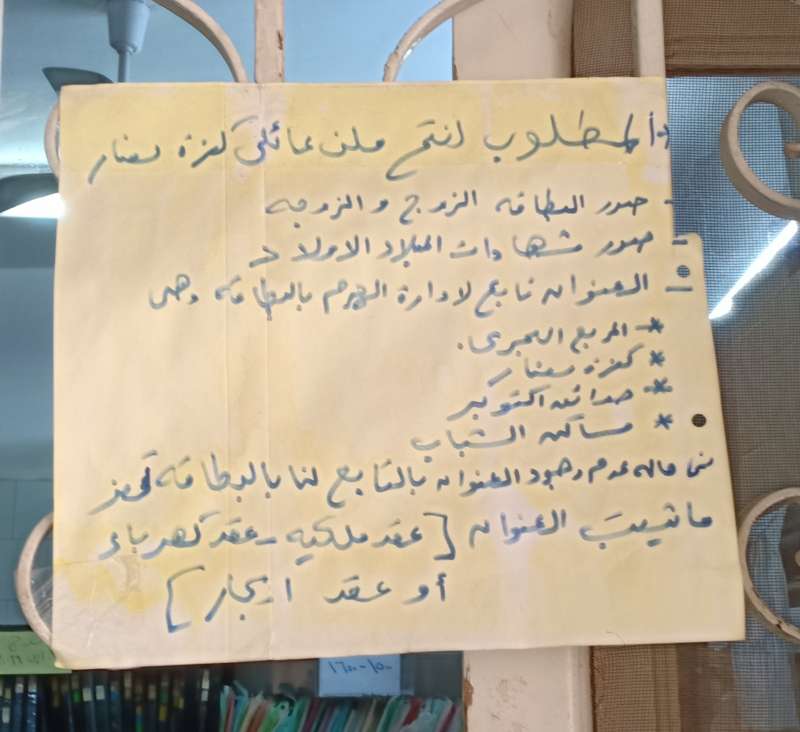 المطلوب لفتح ملف عائلى كفره سفنار
- صور البطاقه الزوج والزوجه
- صور شهادات الميلاد الاولاد
- العنوان تابع لادارة الهرم بالبطاقه وهى
* المربع البحرى.
* كفره سفنار
* حدائق اكتوبر
* مساكن الشباب
فى حاله عدم وجود العنوان بالتابع لنا بالبطاقه تحضر
ما يثبت العنوان [عقد ملكيه - عقد كهرباء
أو عقد ايجار]
١٦٠٠-١٥٠